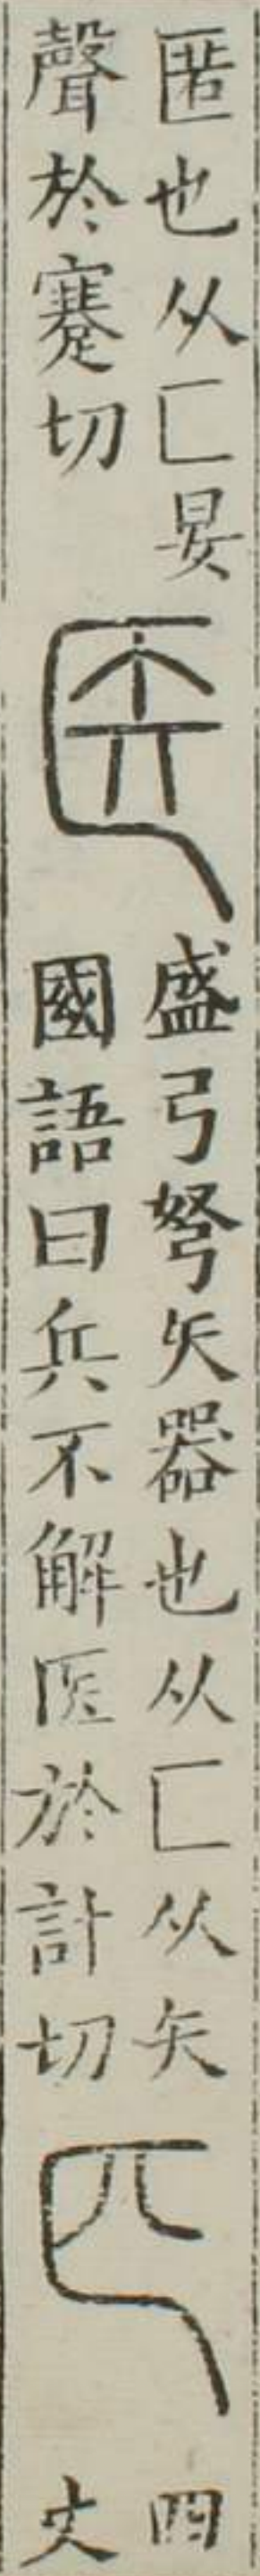 匿也从匸妟
聲於蹇切
医
盛弓弩矢器也从匸从矢
國語曰兵不解医於計切
匹
四
丈